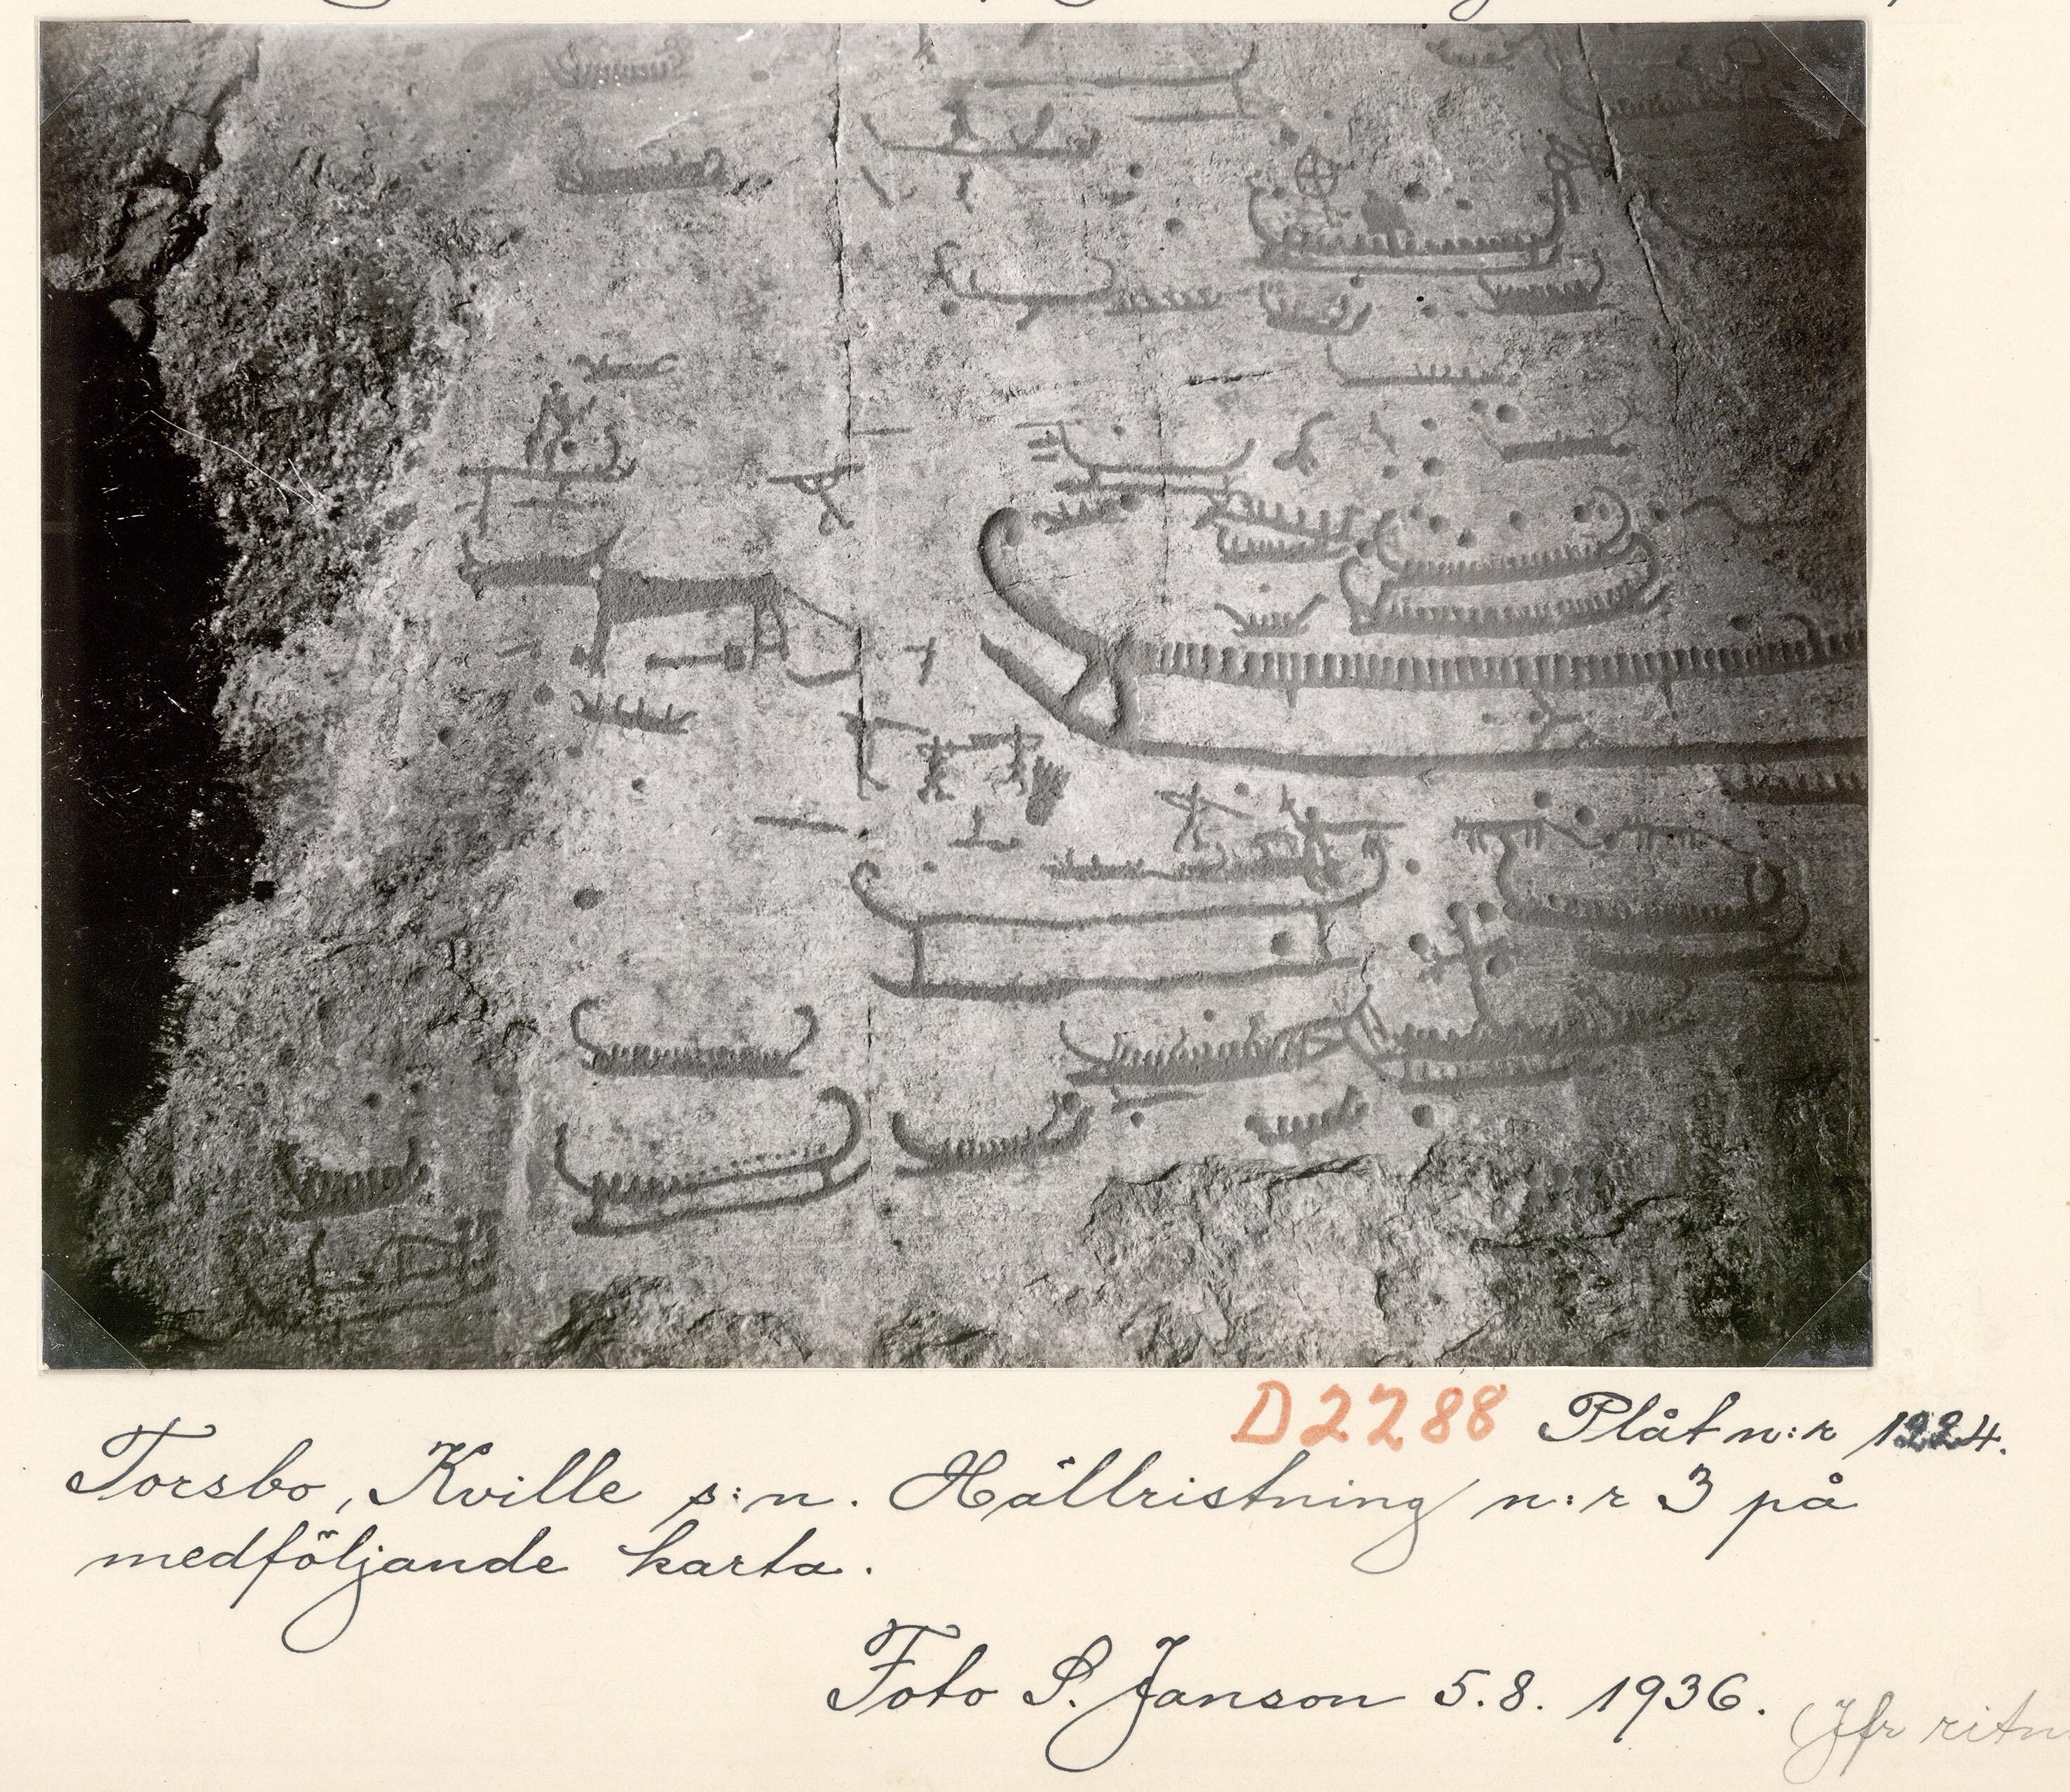 D2288 Plåt n:r 1224.
Torsbo, Kville s:n. Hällristning n:r 3 på
medföljande karta.
Foto S. Janson 5.8. 1936.
(Jfr ritn